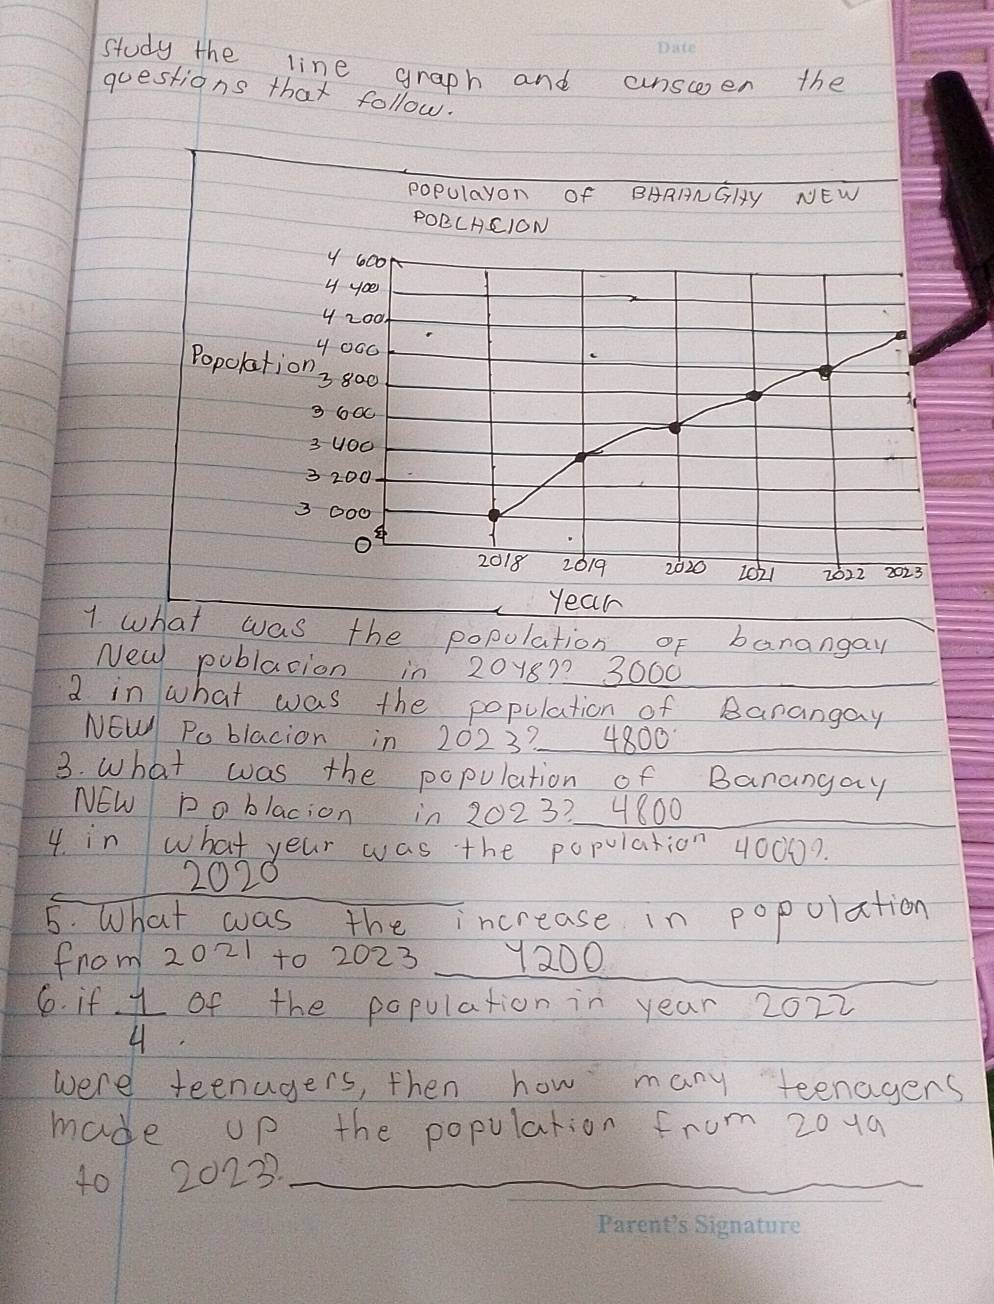 Date
study the line graph and answer the
questions that follow.
POPULAYON OF BARANGAY NEW
POBLACION
4 600
4 400
4 200
4 000
Population
3 800
3 600
3 400
3 200
3 000
0
2018 2019 2020 2021 2022 2023
Year
1. what was the population OF banangay
New publacion in 2018?? 3000
2 in what was the population of Barangay
NEW Poblacion in 2023? 4800
3. what was the population of Barangay
NEW poblacion in 2023? 4800
4. in what year was the population 4000?.
2020
5. What was the increase in population
from 2021 to 2023 4200
6. if 1 of the population in year 2022
4.
were teenagers, then how many teenagers
made up the population from 2019
to 2023?
Parent's Signature